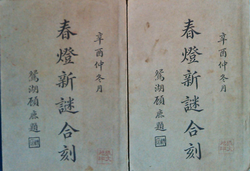 辛酉仲冬月
春燈新謎合刻
鴛湖顧鹿題
辛酉仲冬月
春燈新謎合刻
鴛湖顧鹿題